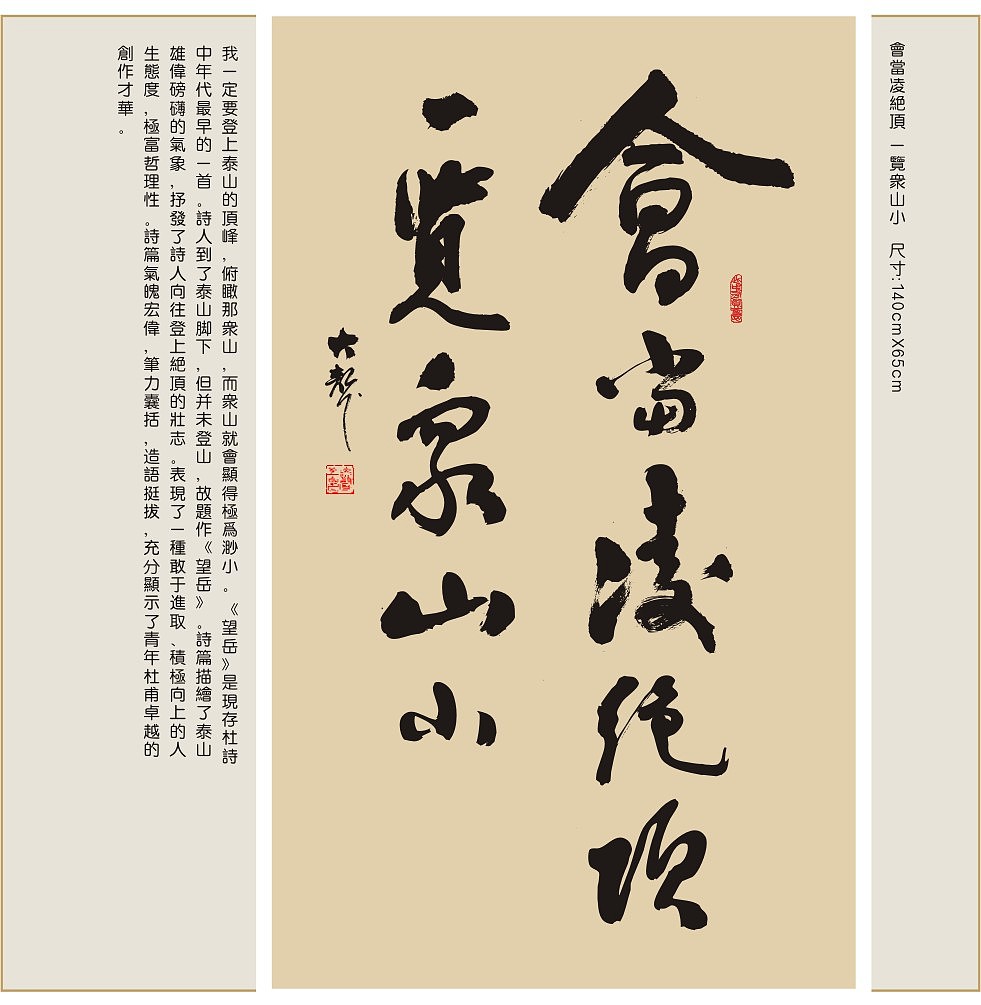 會當凌絶頂 一覽衆山小 尺寸:140cmX65cm
會當凌絶頂
一覽衆山小
我一定要登上泰山的頂峰,俯瞰那衆山,而衆山就會顯得極爲渺小。《望岳》是現存杜詩
中年代最早的一首。詩人到了泰山脚下,但并未登山,故題作《望岳》。詩篇描繪了泰山
雄偉磅礴的氣象,抒發了詩人向往登上絶頂的壯志。表現了一種敢于進取、積極向上的人
生態度,極富哲理性。詩篇氣魄宏偉,筆力囊括,造語挺拔,充分顯示了青年杜甫卓越的
創作才華。